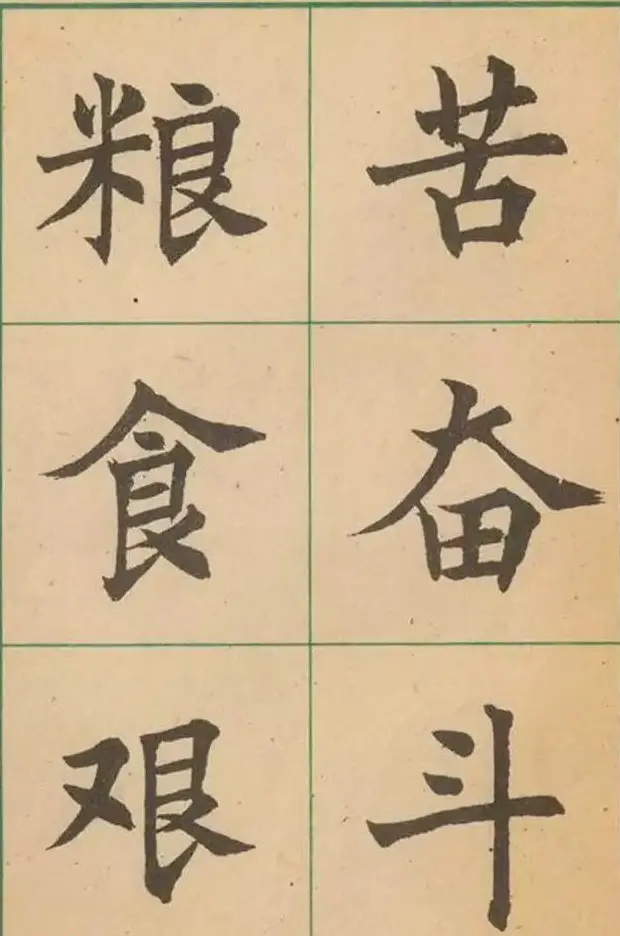 粮食艰
苦奋斗